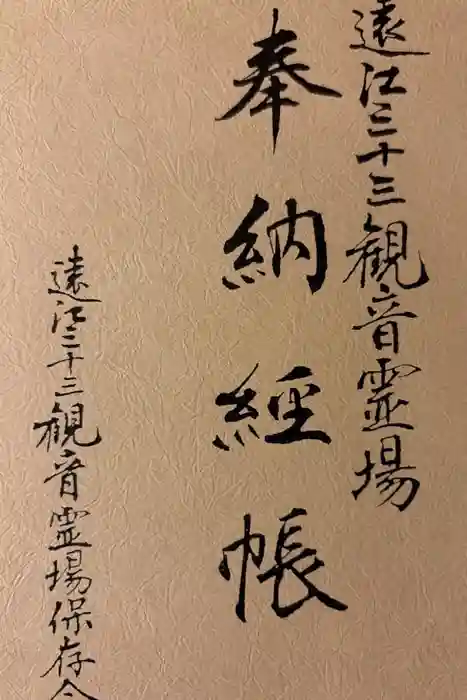 遠江三十三観音霊場
奉納経帳
遠江三十三観音霊場保存会